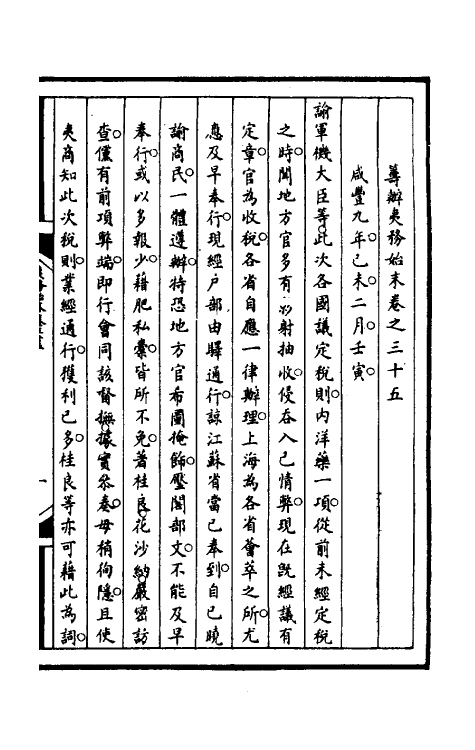 籌辦夷務始末卷之三十五
咸豐九年己未二月壬寅。
諭軍機大臣等。此次各國議定稅則。內洋藥一項。從前未經定稅
之時。聞地方官多有影射抽收。侵吞入己情弊。現在既經議有
定章。官為收稅。各省自應一律辦理。上海為各省薈萃之所。尤
應及早奉行。現經戶部由驛通行。諒江蘇省當已奉到。自已曉
諭商民。一體遵辦。特恐地方官布圖掩飾。壓閣部文。不能及早
奉行。或以多報少。藉肥私橐。皆所不免。著桂良。花沙納。嚴密訪
查。儻有前項弊端。即行會同該督撫。據實參奏。毋稍徇隱。且使
夷商知此次稅則。業經通行。獲利已多。桂良等亦可藉此為詞。
一